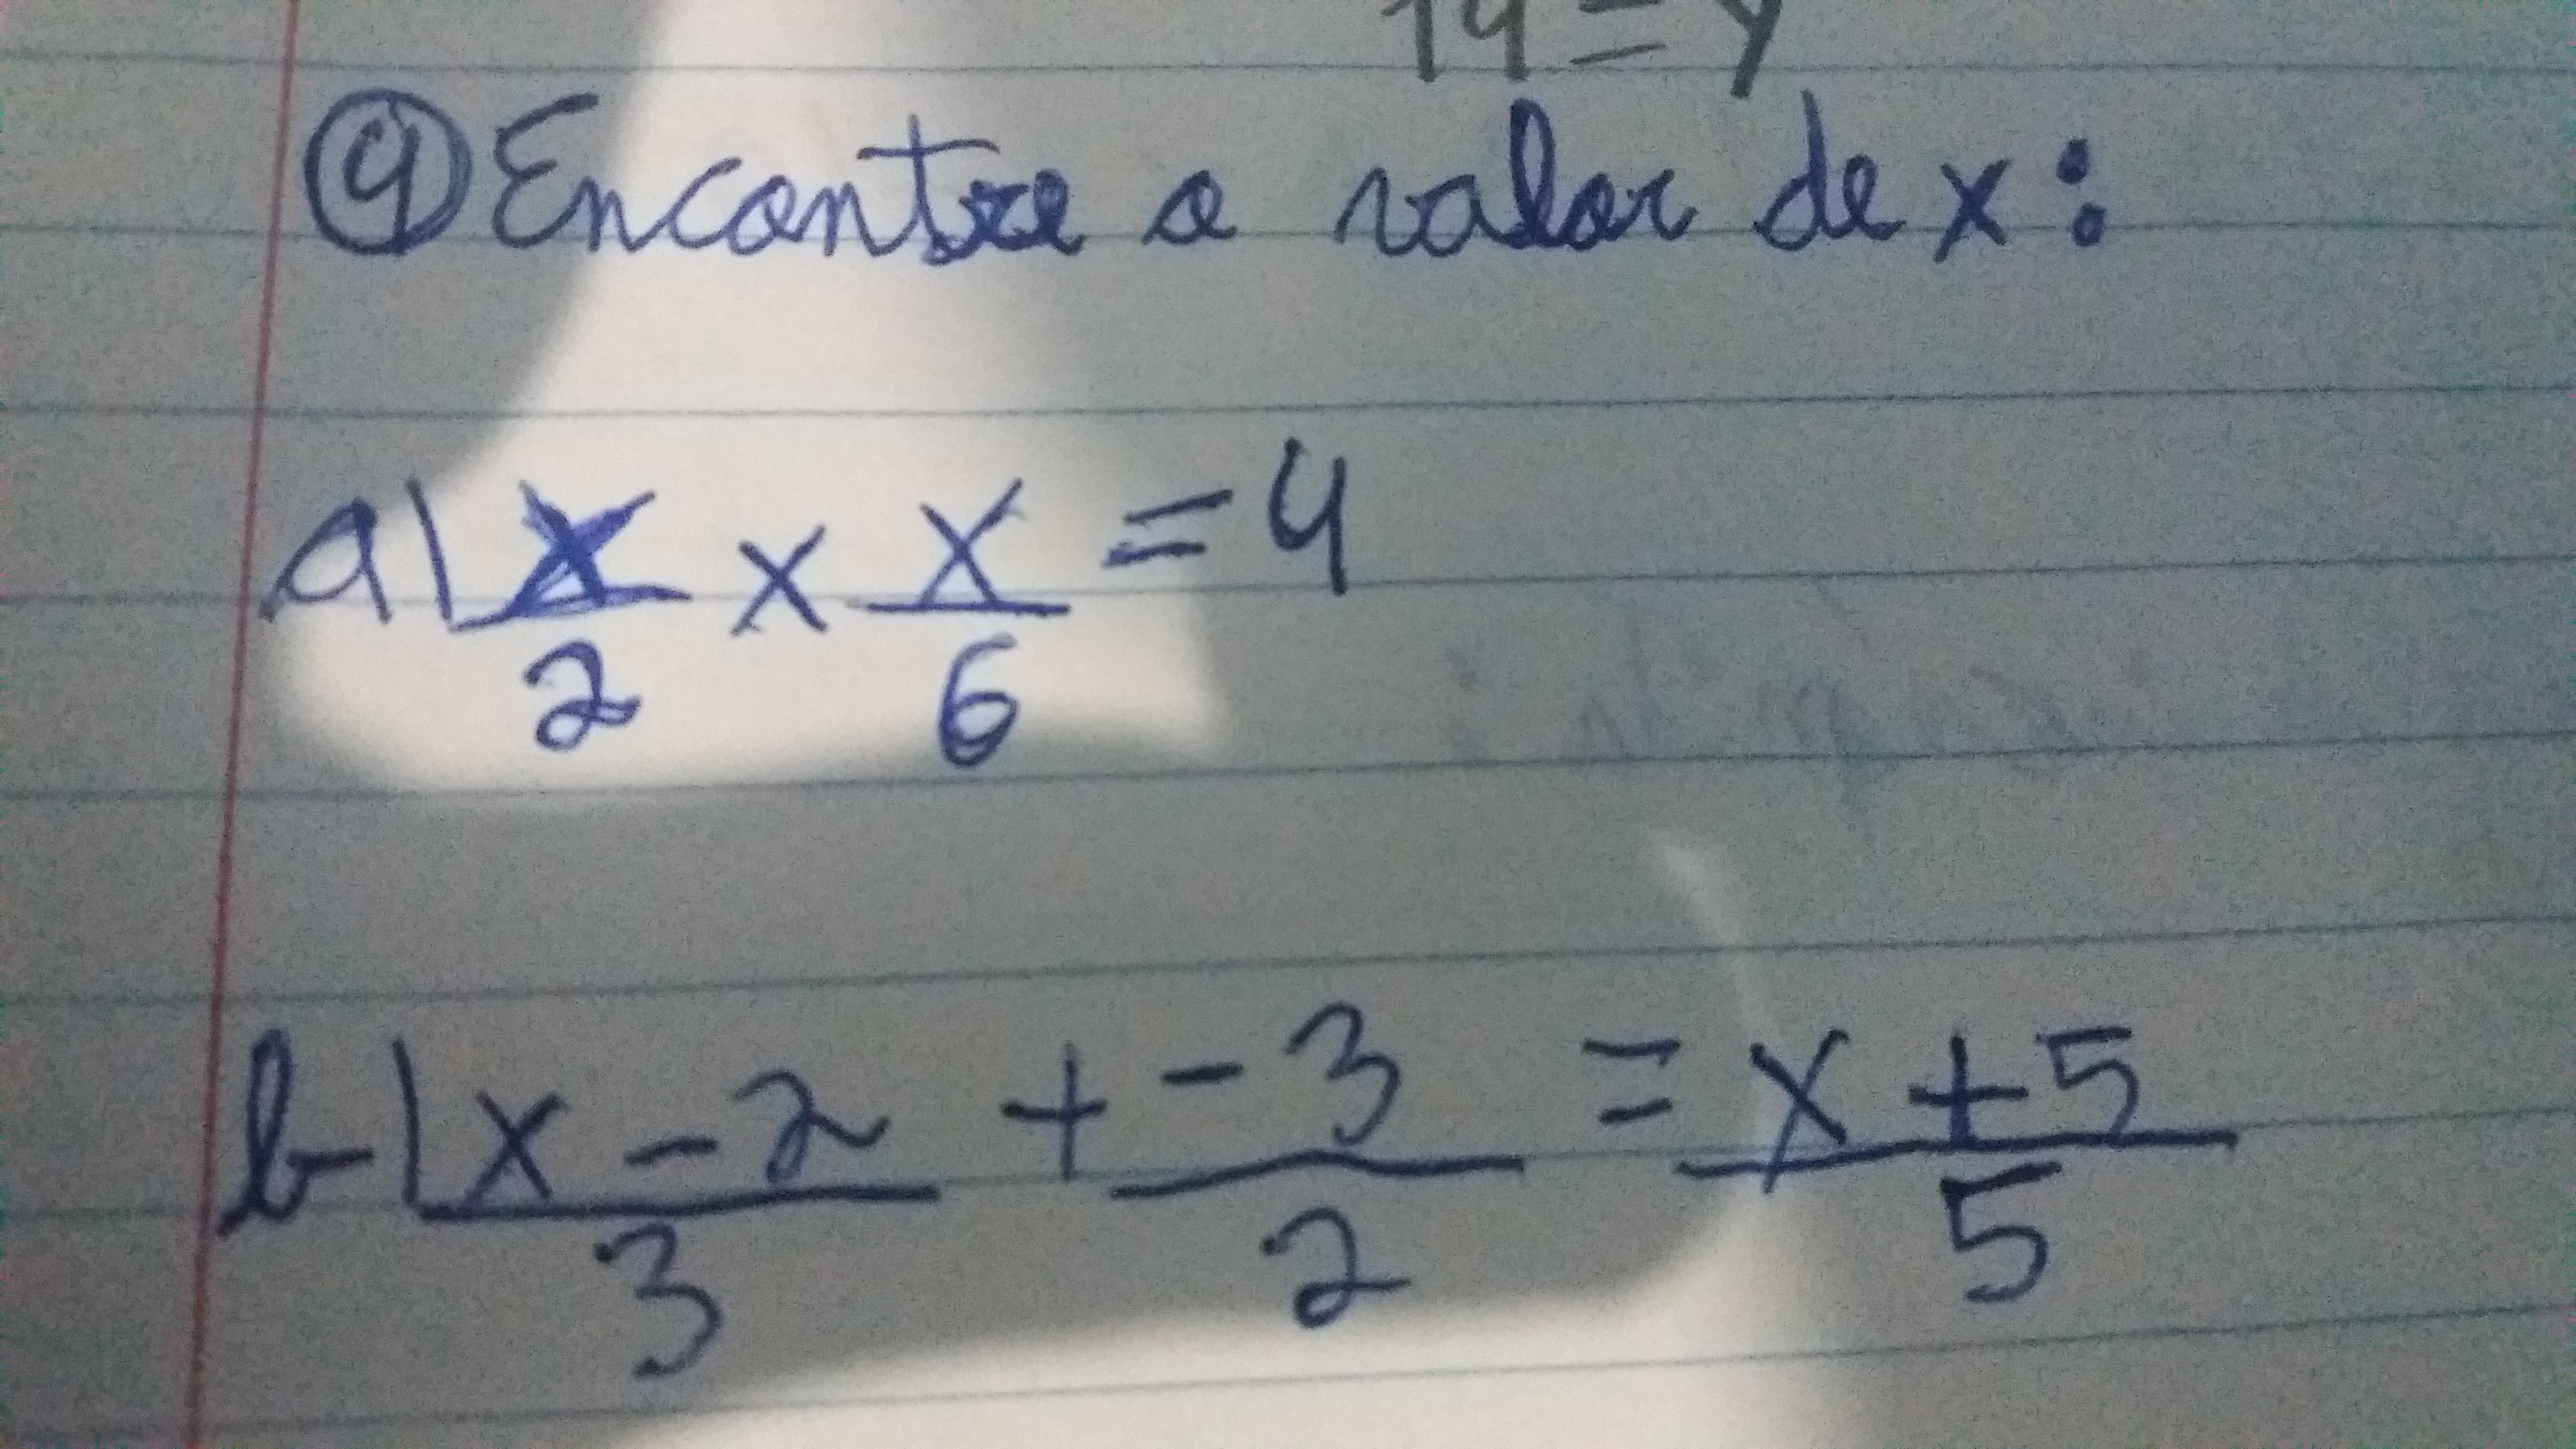 14 = y
④ Encontre o valor de x:
a) x/2 x x/6 = 4
b) x - 2/3 + -3/2 = x + 5/5